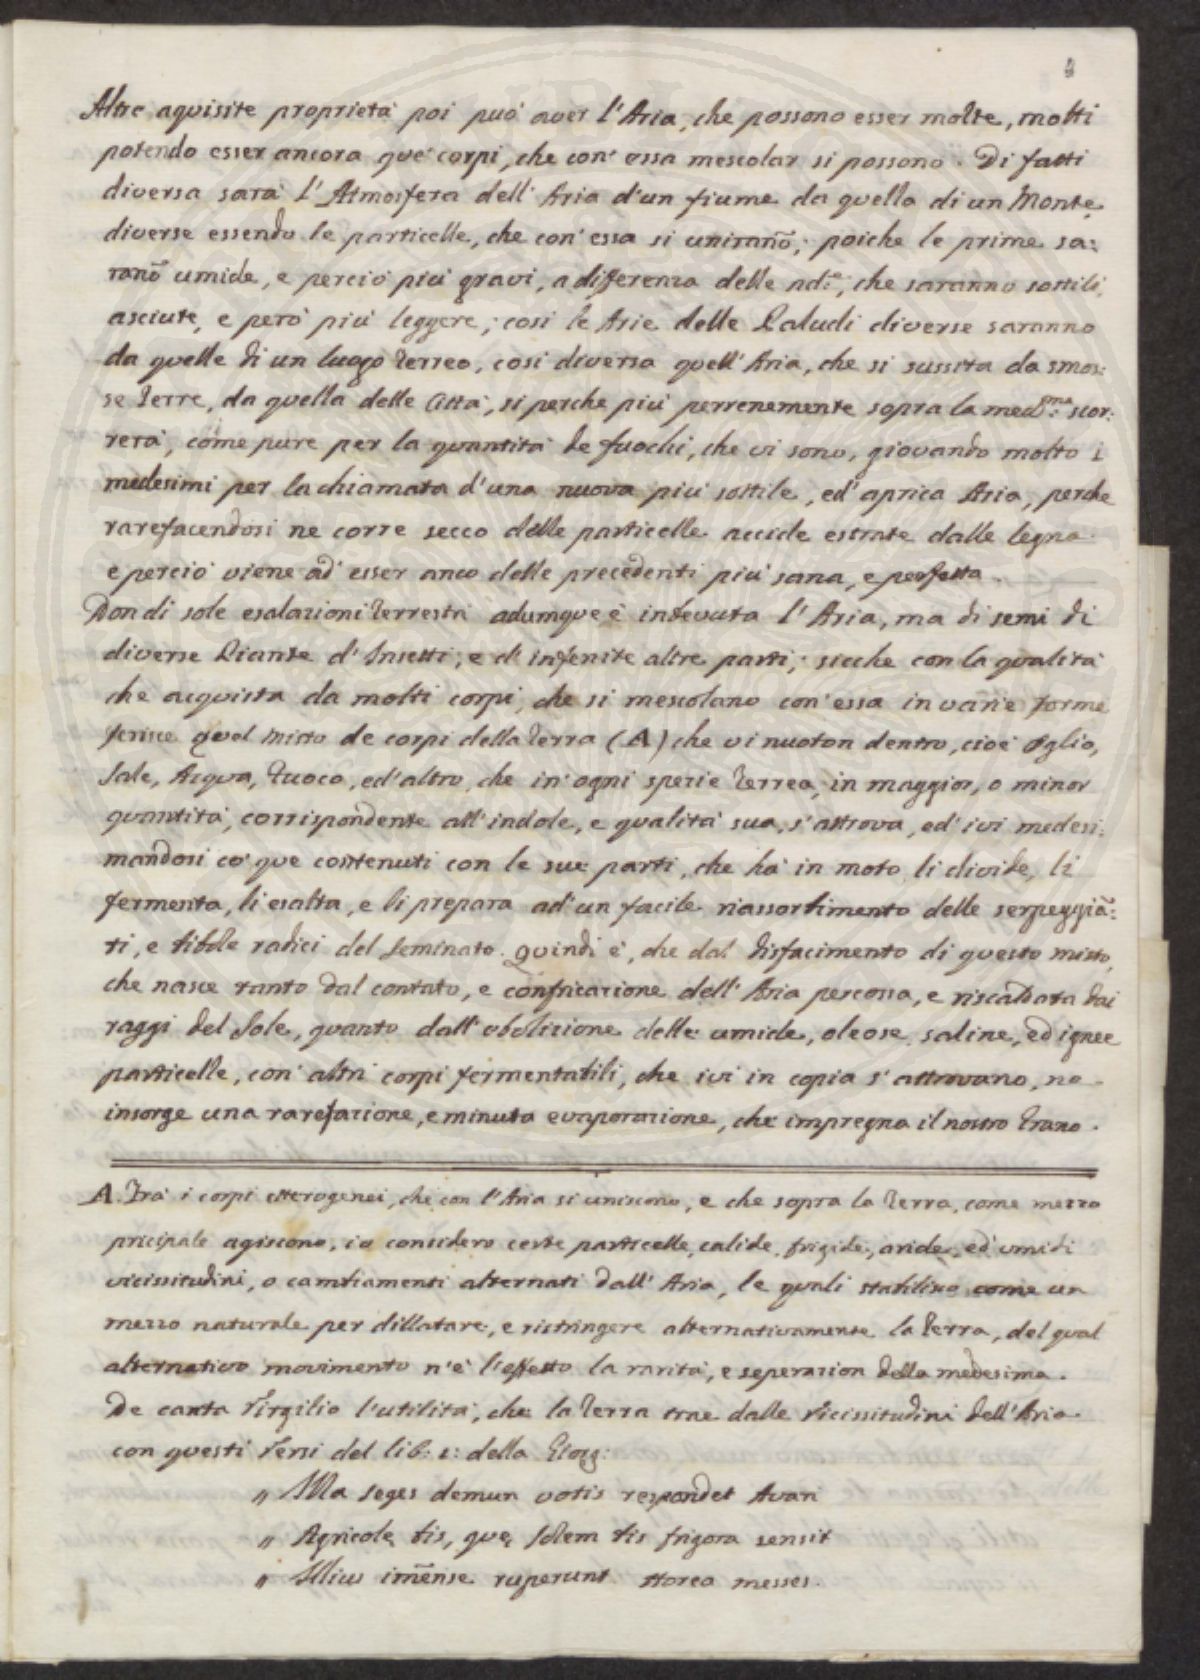 Altre aquisite proprietà poi può aver l'Aria, che possono esser molte, molti
potendo esser ancora que' corpi, che con' essa mescolar si possono. Di fatti
diversa sarà l'Atmosfera dell' Aria d'un fiume da quella di un Monte,
diverse essendo le particelle, che con' essa si uniranõ; poiche le prime sa:
ranõ umide, e perciò più gravi, a differenza delle 2dẽ, che saranno sottili,
asciute, e però più leggere; così le Arie delle Paludi diverse saranno
da quelle di un luogo Terreo, così diversa quell' Aria, che si sussita da smos:
se Terre, da quella delle Città, si perche più perrenemente sopra la medma: scor:
rerà, come pure per la quantità de fuochi, che vi sono, giovando molto i
medesimi per la chiamata d'una nuova più sottile, ed' aprica Aria, perche
rarefacendosi ne corre secco delle particelle accide estrate dalle legna
e perciò viene ad' esser anco delle precedenti più sana, e perfetta.
Non di sole esalazioni Terrestri adumque è imbevuta l'Aria, ma di semi di
diverse Piante d' Insetti; e d' infenite altre parti; sicche con la qualità
che acquista da molti corpi, che si mescolano con' essa in varie forme
ferisce quel misto de corpi della Terra (A) che vi nuoton dentro, cioè Oglio,
Sale, Acqua, Fuoco, ed' altro, che in' ogni spezie Terrea, in maggior, o minor
quantità, corrispondente all' indole, e qualità sua, s'attrova, ed' ivi medesi:
mandosi co' que contenuti con le sue parti, che hà in moto, li divide, li
fermenta, li esalta, e li prepara ad' un facile riassortimento delle serpeggiã:
ti, e bibole radici del Seminato. Quindi è, che dal disfacimento di questo misto,
che nasce tanto dal contato, e confricazione dell' Aria percossa, e riscaldata dai
raggi del Sole, quanto dall' ebolizione delle umide, oleose saline, ed ignee
particelle, con' altri corpi fermentabili, che ivi in copia s'attrovano, ne
insorge una rarefazione, e minuta evaporazione, che impregna il nostro Grano.
A. Trà i corpi etterogenei, che con l'Aria si uniscono, e che sopra la Terra, come mezzo
pricipale agiscono, io considero certe particelle, calide, frigide, aride, ed' umidi
vicissitudini, o cambiamenti alternati dall' Aria, le quali stabilisco come un
mezzo naturale per dillatare, e ristringere alternativamente la Terra, del qual
alternativo movimento n'è l'effetto la rarità, e seperazion della medesima.
De canta Virgilio l'utilità, che la Terra trae dalle Vicissitudini dell'Aria
con questi Versi del lib: 1: della Giorg:
" Illa seges demun votis respondet Avari
" Agricolę bis, quę Solem bis frigora sensit
" Illius imẽnse ruperunt Horea messes.